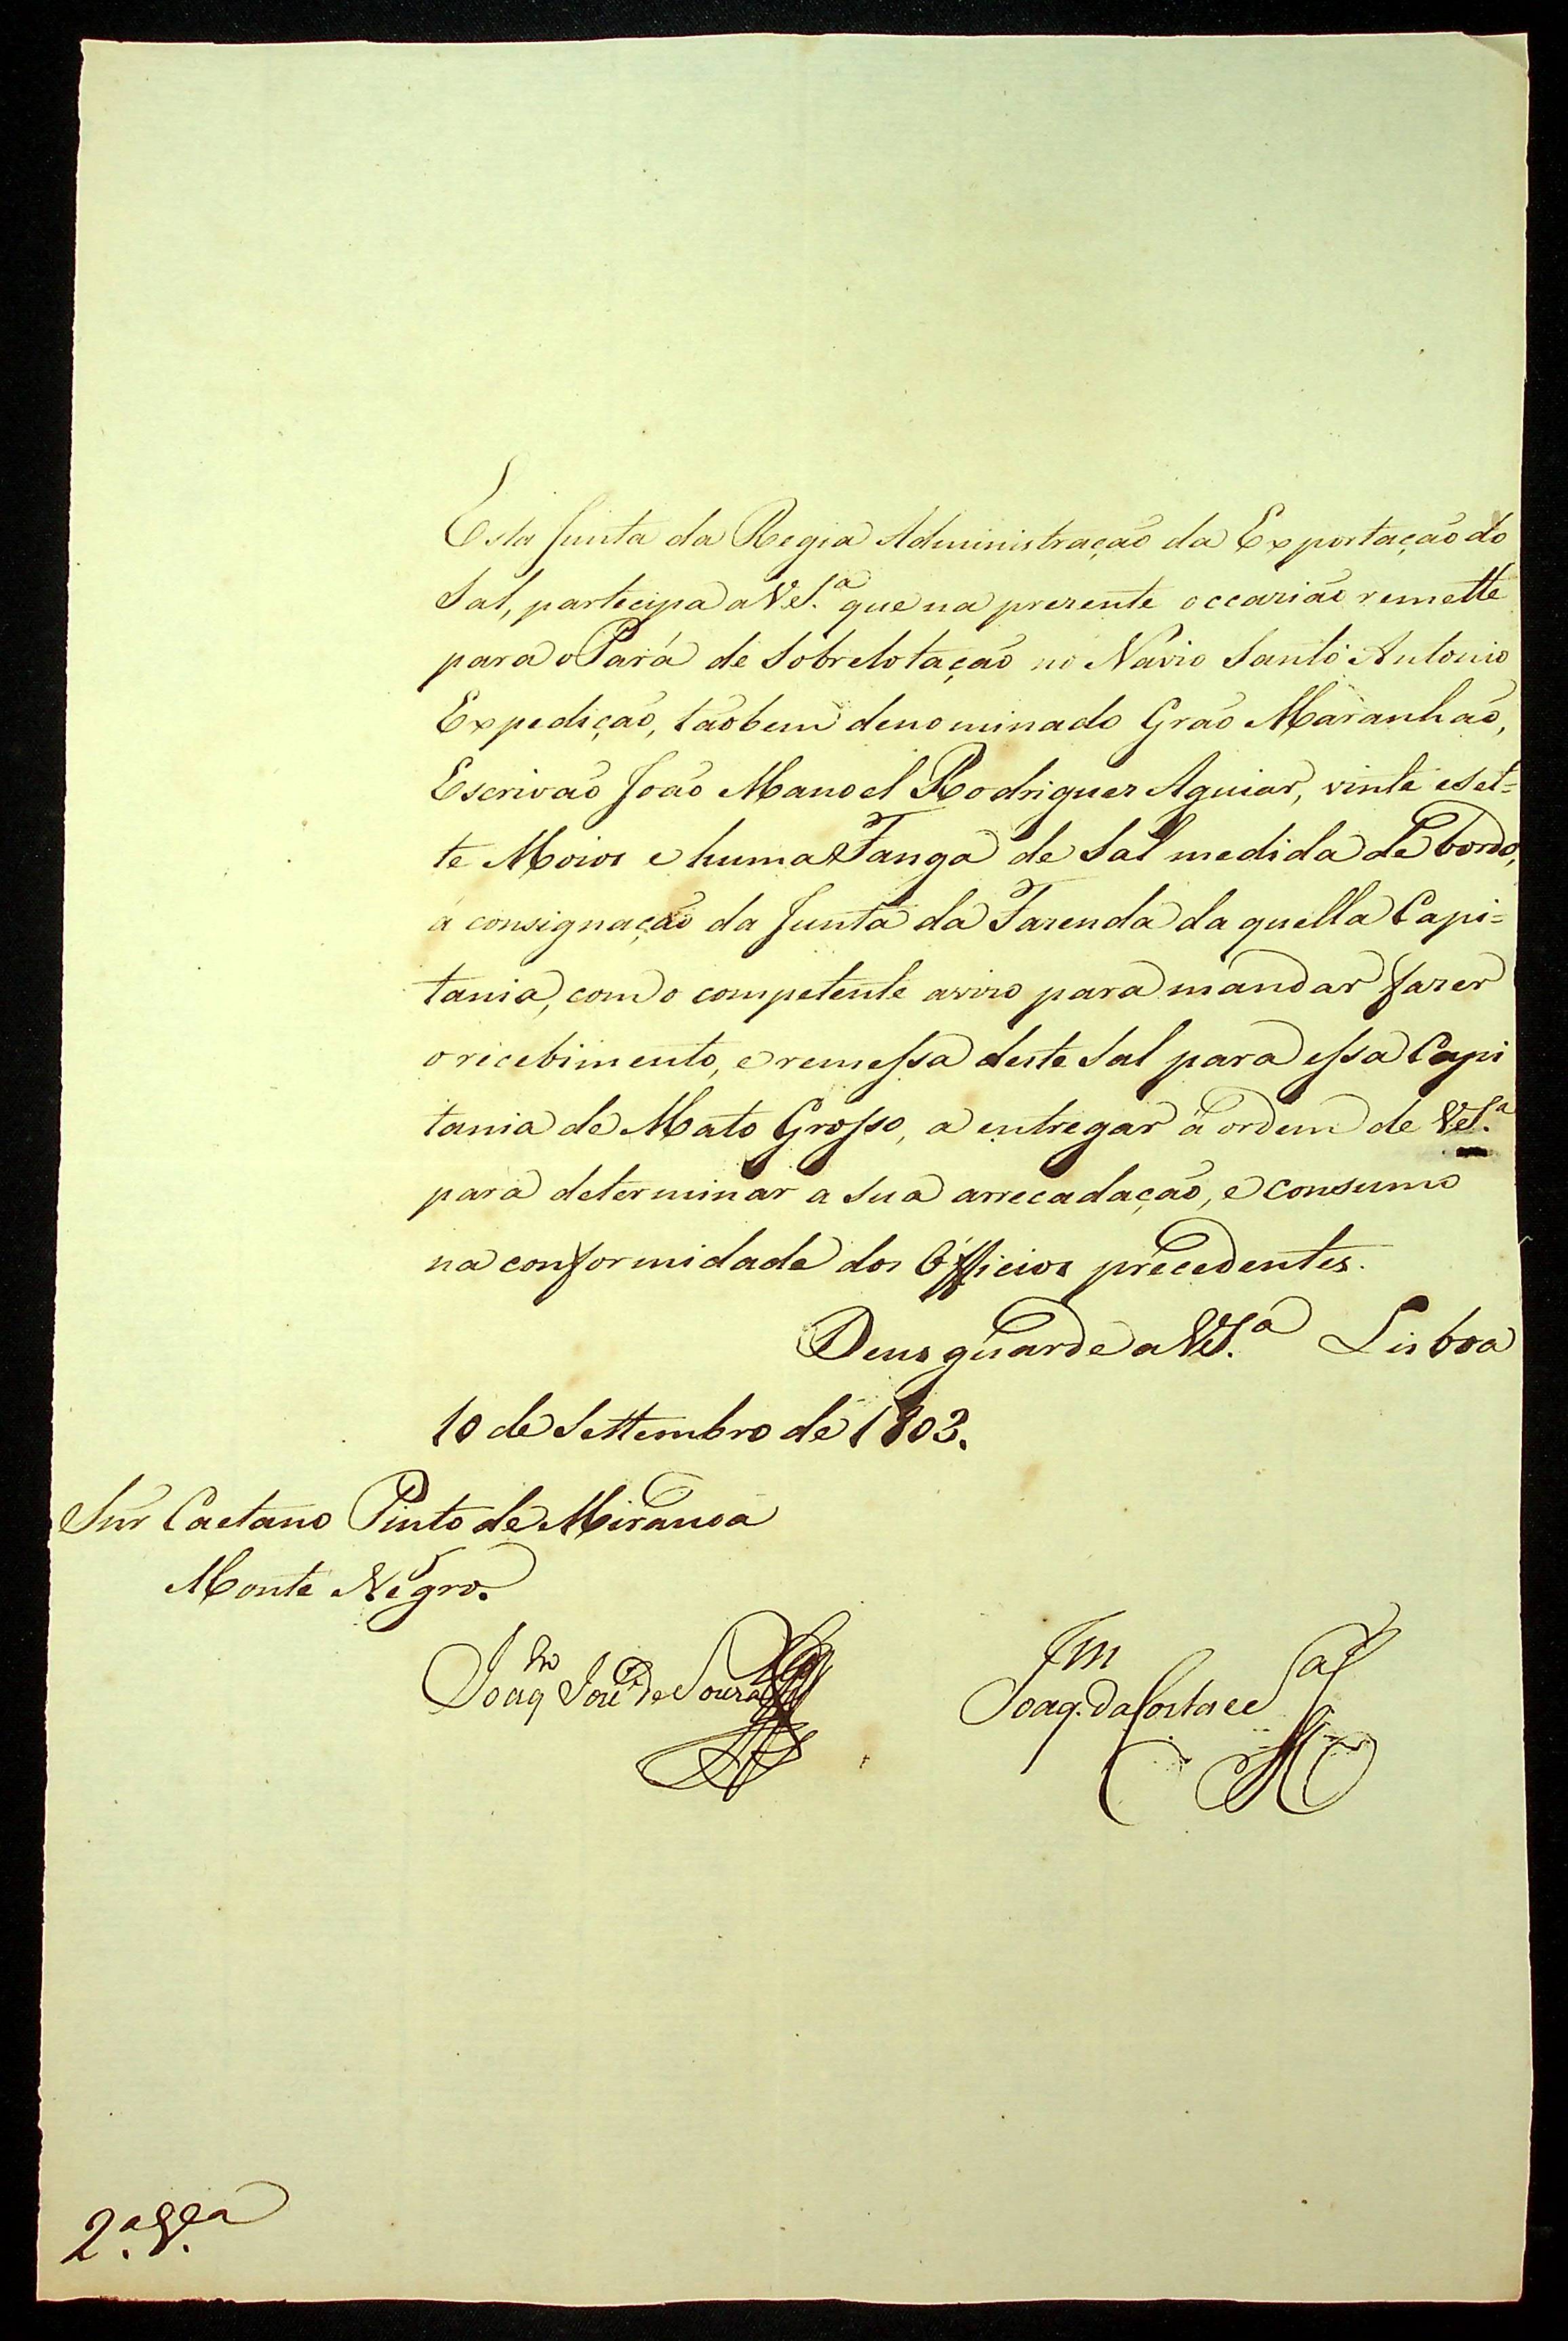 Esta Junta da Regia Administração da Exportação do
Sal, partecipa a V.S.ª que na prezente occazião remette
para o Pará de Sobrelotação no Navio Santo Antonio
Expedição, tãobem denominado Grão Maranhão,
Escrivão João Manoel Rodriguez Aguiar, vinte e set=
te Moios e huma Fanga de Sal medida de bordo,
á consignação da Junta da Fazenda da quella Capi=
tania, com o competente avizo para mandar fazer
o recebimento, e remessa deste Sal para essa Capi
tania de Mato Grosso, a entregar á ordem de V.S.ª
para determinar a sua arrecadação, e consumo
na conformidade dos Officios precedentes.
Deus guarde a V.S.ª Lisboa
10 de Settembro de 1803.
Snr Caetano Pinto de Miranda
Monte Negro.
Joaq.m José de Souza
Joaq.m da Costa e Sª
2.ª